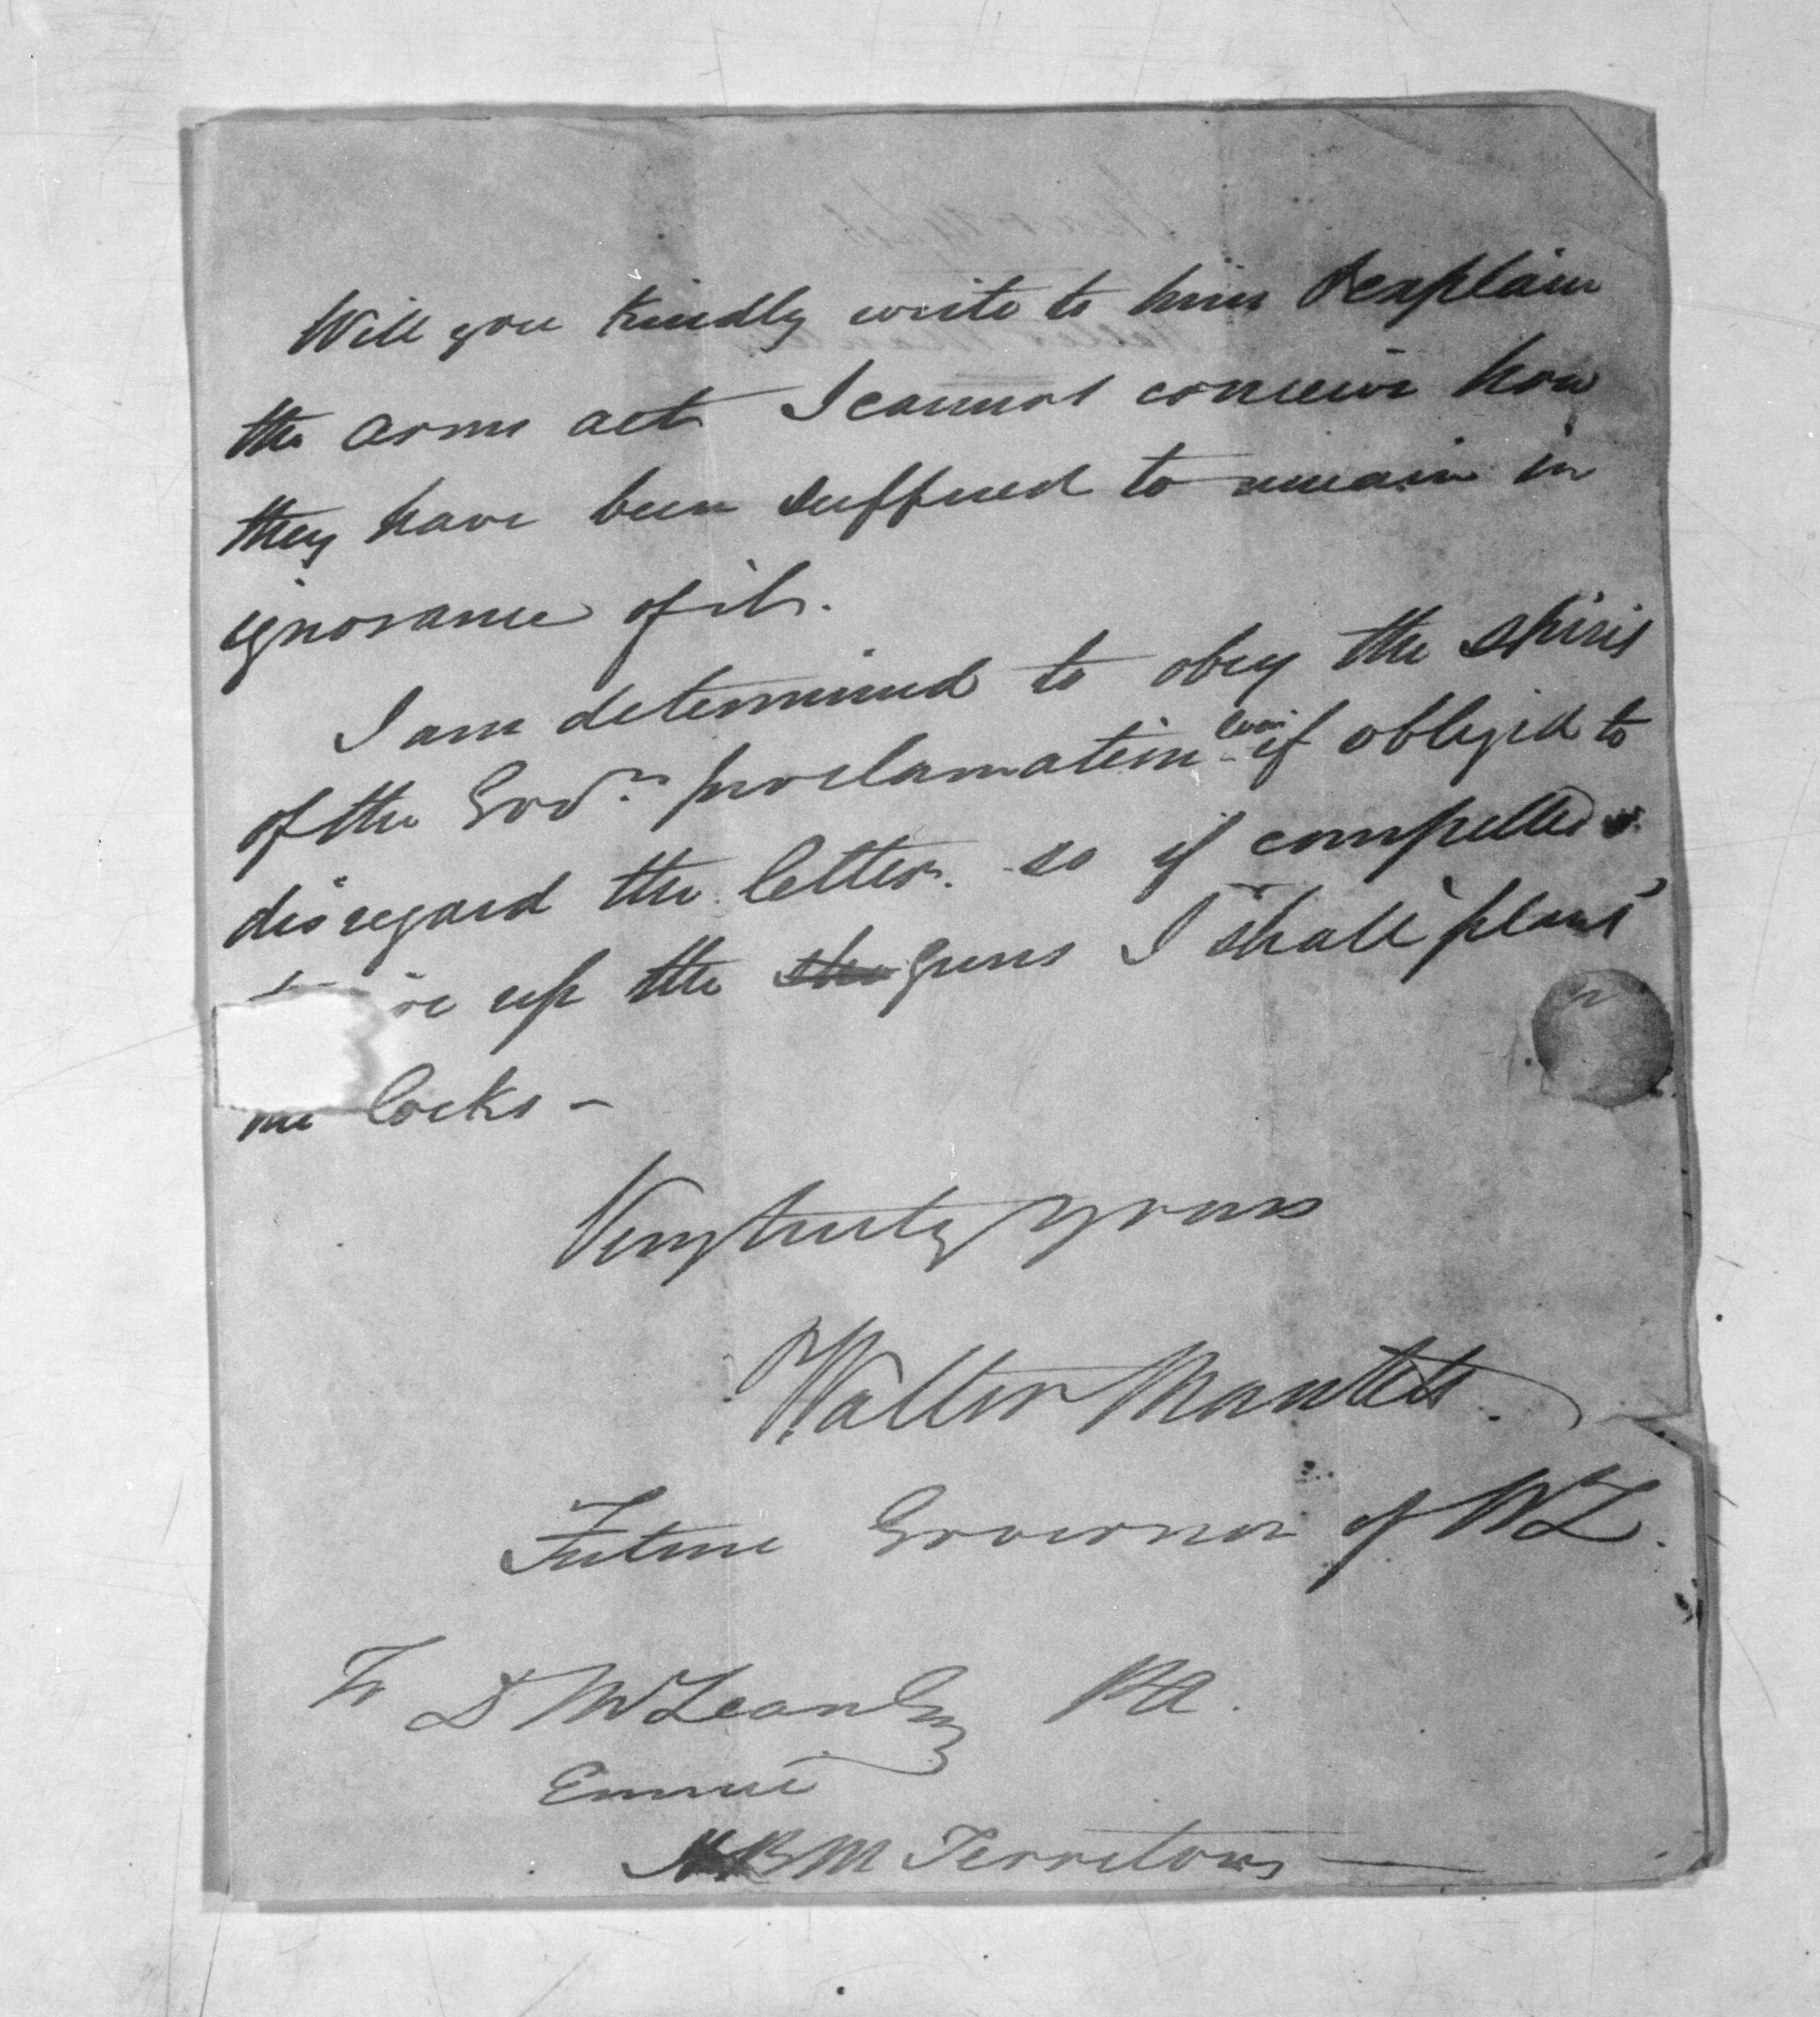 Will you kindly write to him & explain
the arms act I cannot conceive how
they have been suffered to remain in
ignorance of it.
I am determined to obey the spirit
of the Govr.'s proclamation even if obliged to
disregard the letter. so if compelled
up the guns I shall plant
locks -
Very truly yours
Walter Mantell.
Future Governor of NZ.
To D McLean Esq PM.
H B M Territory